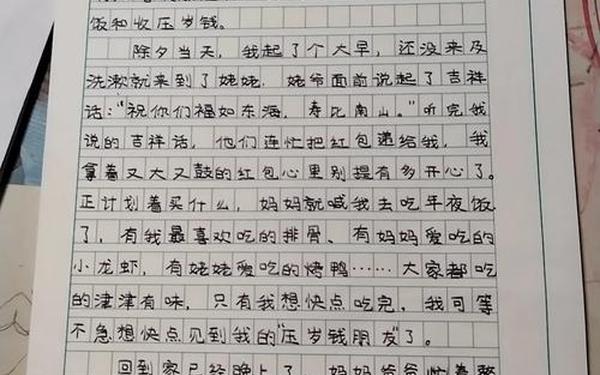 饭和收压岁钱。
除夕当天，我起了个大早，还没来及
洗漱就来到了姥姥，姥爷面前说起了吉祥
话："祝你们福如东海，寿比南山。"听完我
说的吉祥话，他们连忙把红包递给我，我
拿着又大又鼓的红包心里别提有多开心了。
正计划着买什么，妈妈就喊我去吃年夜饭
了，有我最喜欢吃的排骨、有妈妈爱吃的
小龙虾，有姥姥爱吃的烤鸭……大家都吃
的津津有味，只有我想快点吃完，我可等
不急想快点见到我的"压岁钱朋友"了。
回到家已经晚上了，妈妈爸爸忙着整